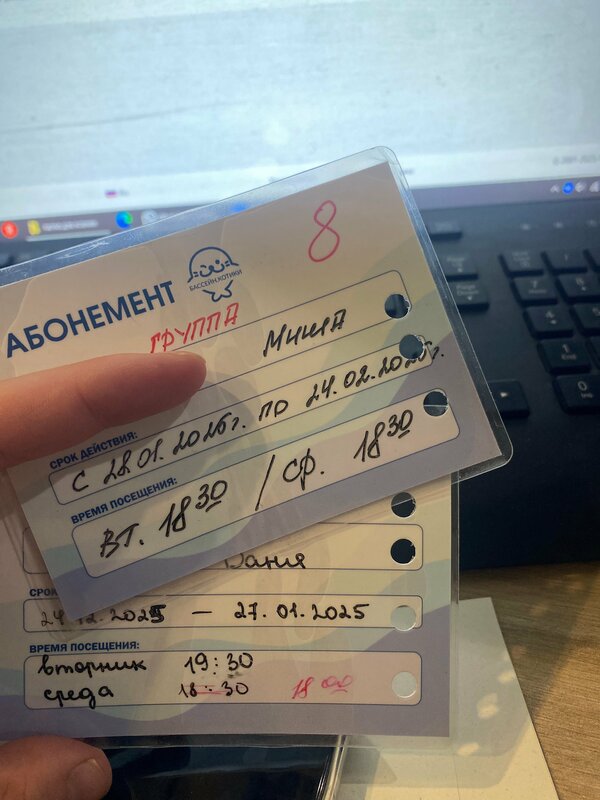 8
АБОНЕМЕНТ
БАССЕЙН.КОТИКИ
ГРУППА
Миша
СРОК ДЕЙСТВИЯ:
С 28.01.2026г. ПО 24.02.2026г.
ВРЕМЯ ПОСЕЩЕНИЯ:
ВТ. 18 30 / СР. 18 30
Ваня
СРОК
24.12.2025 — 27.01.2025
ВРЕМЯ ПОСЕЩЕНИЯ:
вторник 19:30
среда 18:30 18 00